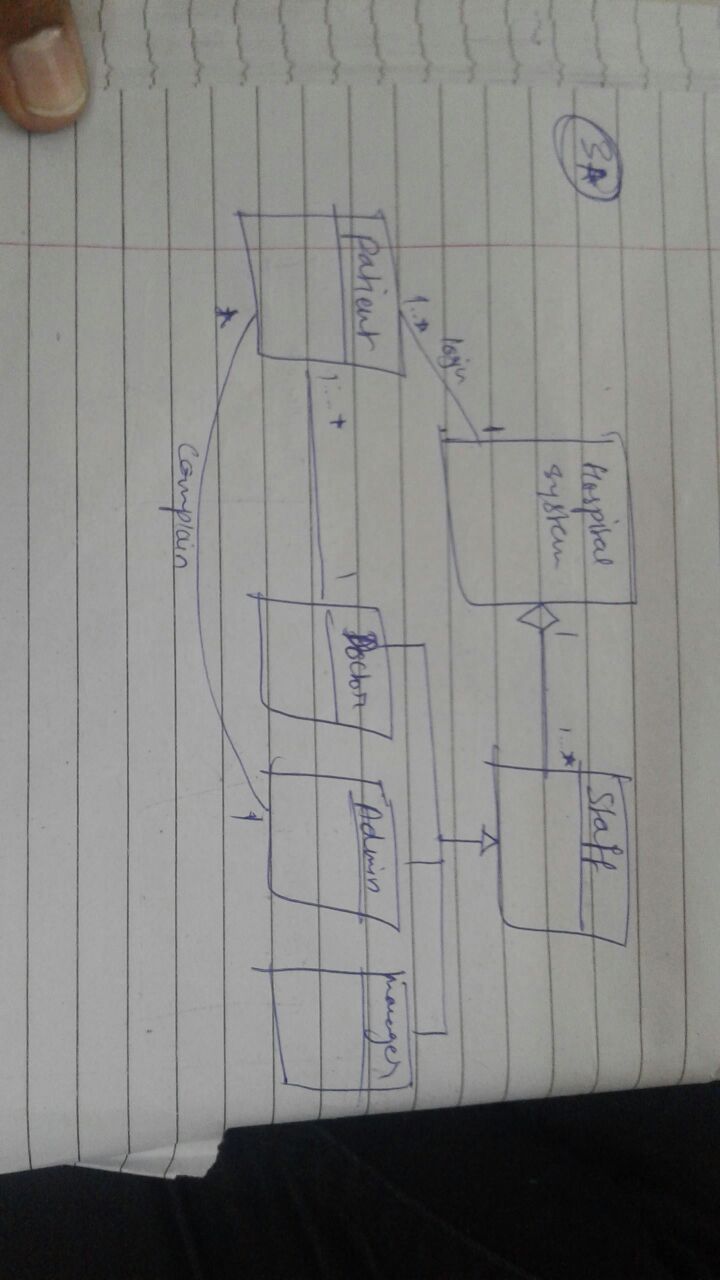 3A
Hospital
system
Staff
1
1..*
1
login
1..*
Patient
Doctor
Admin
manager
1...*
1
*
1
Complain